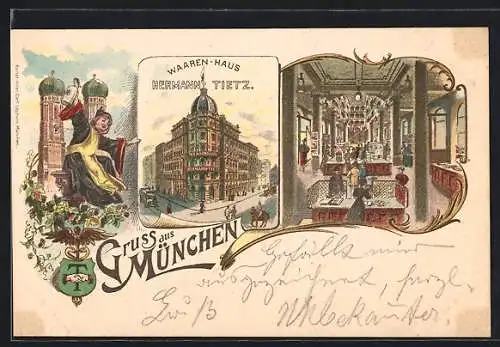 WAAREN-HAUS
HERMANN TIETZ.
GRUSS aus
MÜNCHEN
Gefällt mir
ausgezeichnet, herzl.
Gruß